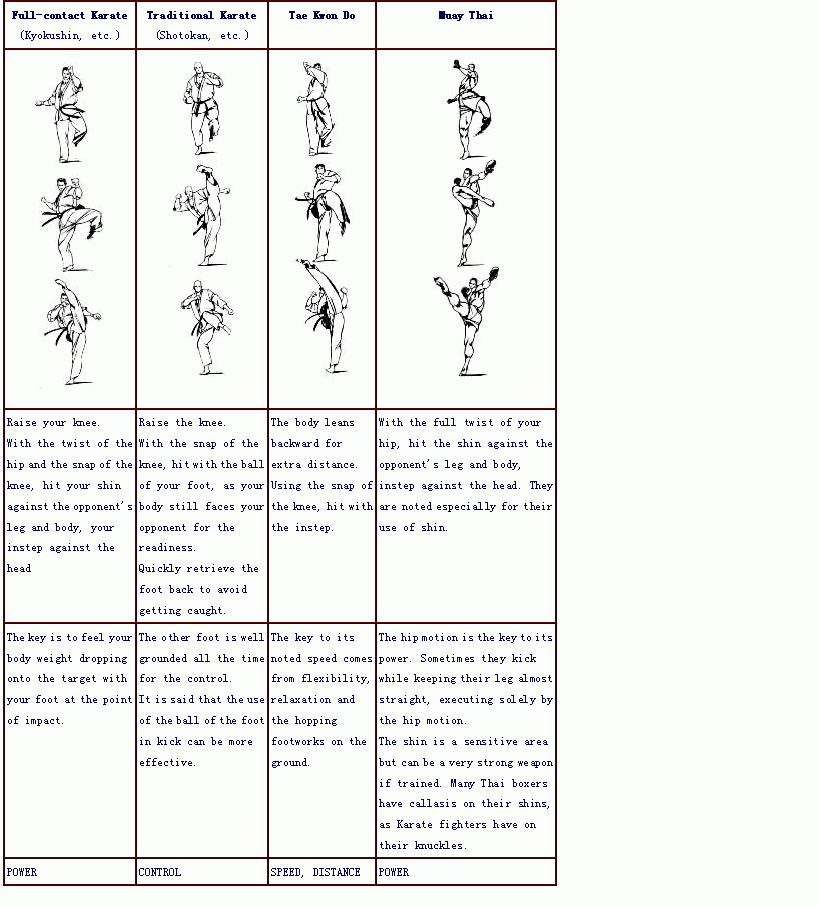 Full-contact Karate
(Kyokushin, etc.)
Traditional Karate
(Shotokan, etc.)
Tae Kwon Do
Muay Thai
Raise your knee.
With the twist of the
hip and the snap of the
knee, hit your shin
against the opponent's
leg and body, your
instep against the
head
Raise the knee.
With the snap of the
knee, hit with the ball
of your foot, as your
body still faces your
opponent for the
readiness.
Quickly retrieve the
foot back to avoid
getting caught.
The body leans
backward for
extra distance.
Using the snap of
the knee, hit with
the instep.
With the full twist of your
hip, hit the shin against the
opponent's leg and body,
instep against the head. They
are noted especially for their
use of shin.
The key is to feel your
body weight dropping
onto the target with
your foot at the point
of impact.
The other foot is well
grounded all the time
for the control.
It is said that the use
of the ball of the foot
in kick can be more
effective.
The key to its
noted speed comes
from flexibility,
relaxation and
the hopping
footworks on the
ground.
The hip motion is the key to its
power. Sometimes they kick
while keeping their leg almost
straight, executing solely by
the hip motion.
The shin is a sensitive area
but can be a very strong weapon
if trained. Many Thai boxers
have callasis on their shins,
as Karate fighters have on
their knuckles.
POWER
CONTROL
SPEED, DISTANCE
POWER